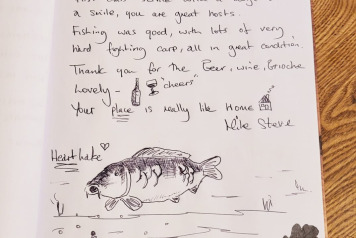 a smile, you are great hosts.
Fishing was good, with lots of very
hard fighting carp, all in great condition.
Thank you for the Beer, wine, Brioche
Lovely - "cheers"
Your place is really like Home
Mike Steve
Heart Lake